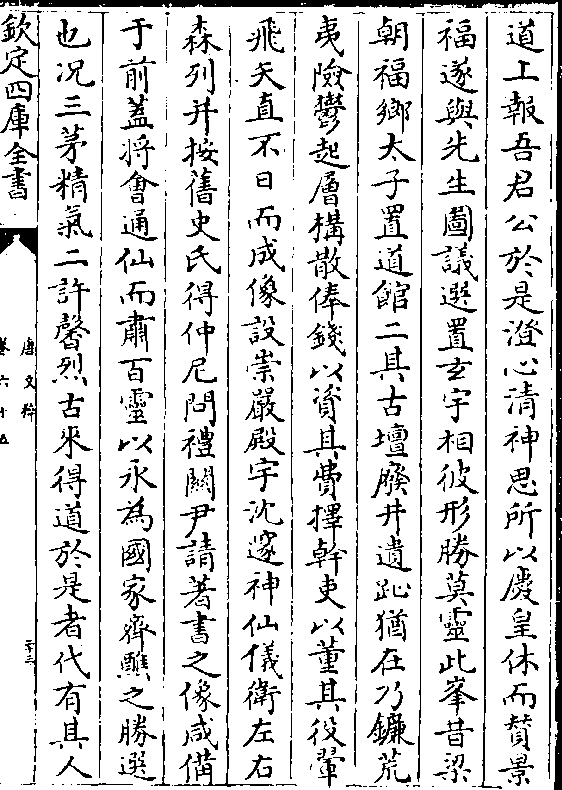 道上報吾君公於是澄心清神思所以慶皇休而賛景
福遂與先生圖議選置玄宇相彼形勝莫靈此峯昔梁
朝福鄉太子置道館二其古壇廢井遺趾猶在乃鐮荒
夷險鬱起層構散俸錢以資其費擇幹吏以董其役翬
飛矢直不日而成像設崇嚴殿宇沈邃神仙儀衛左右
森列并按舊史氏得仲尼問禮關尹請著書之像咸備
于前蓋將會通仙而肅百靈以永為國家齊醮之勝選
也况三茅精氣二許馨烈古來得道於是者代有其人
欽定四庫全書
唐文粹
卷六十五
二十三